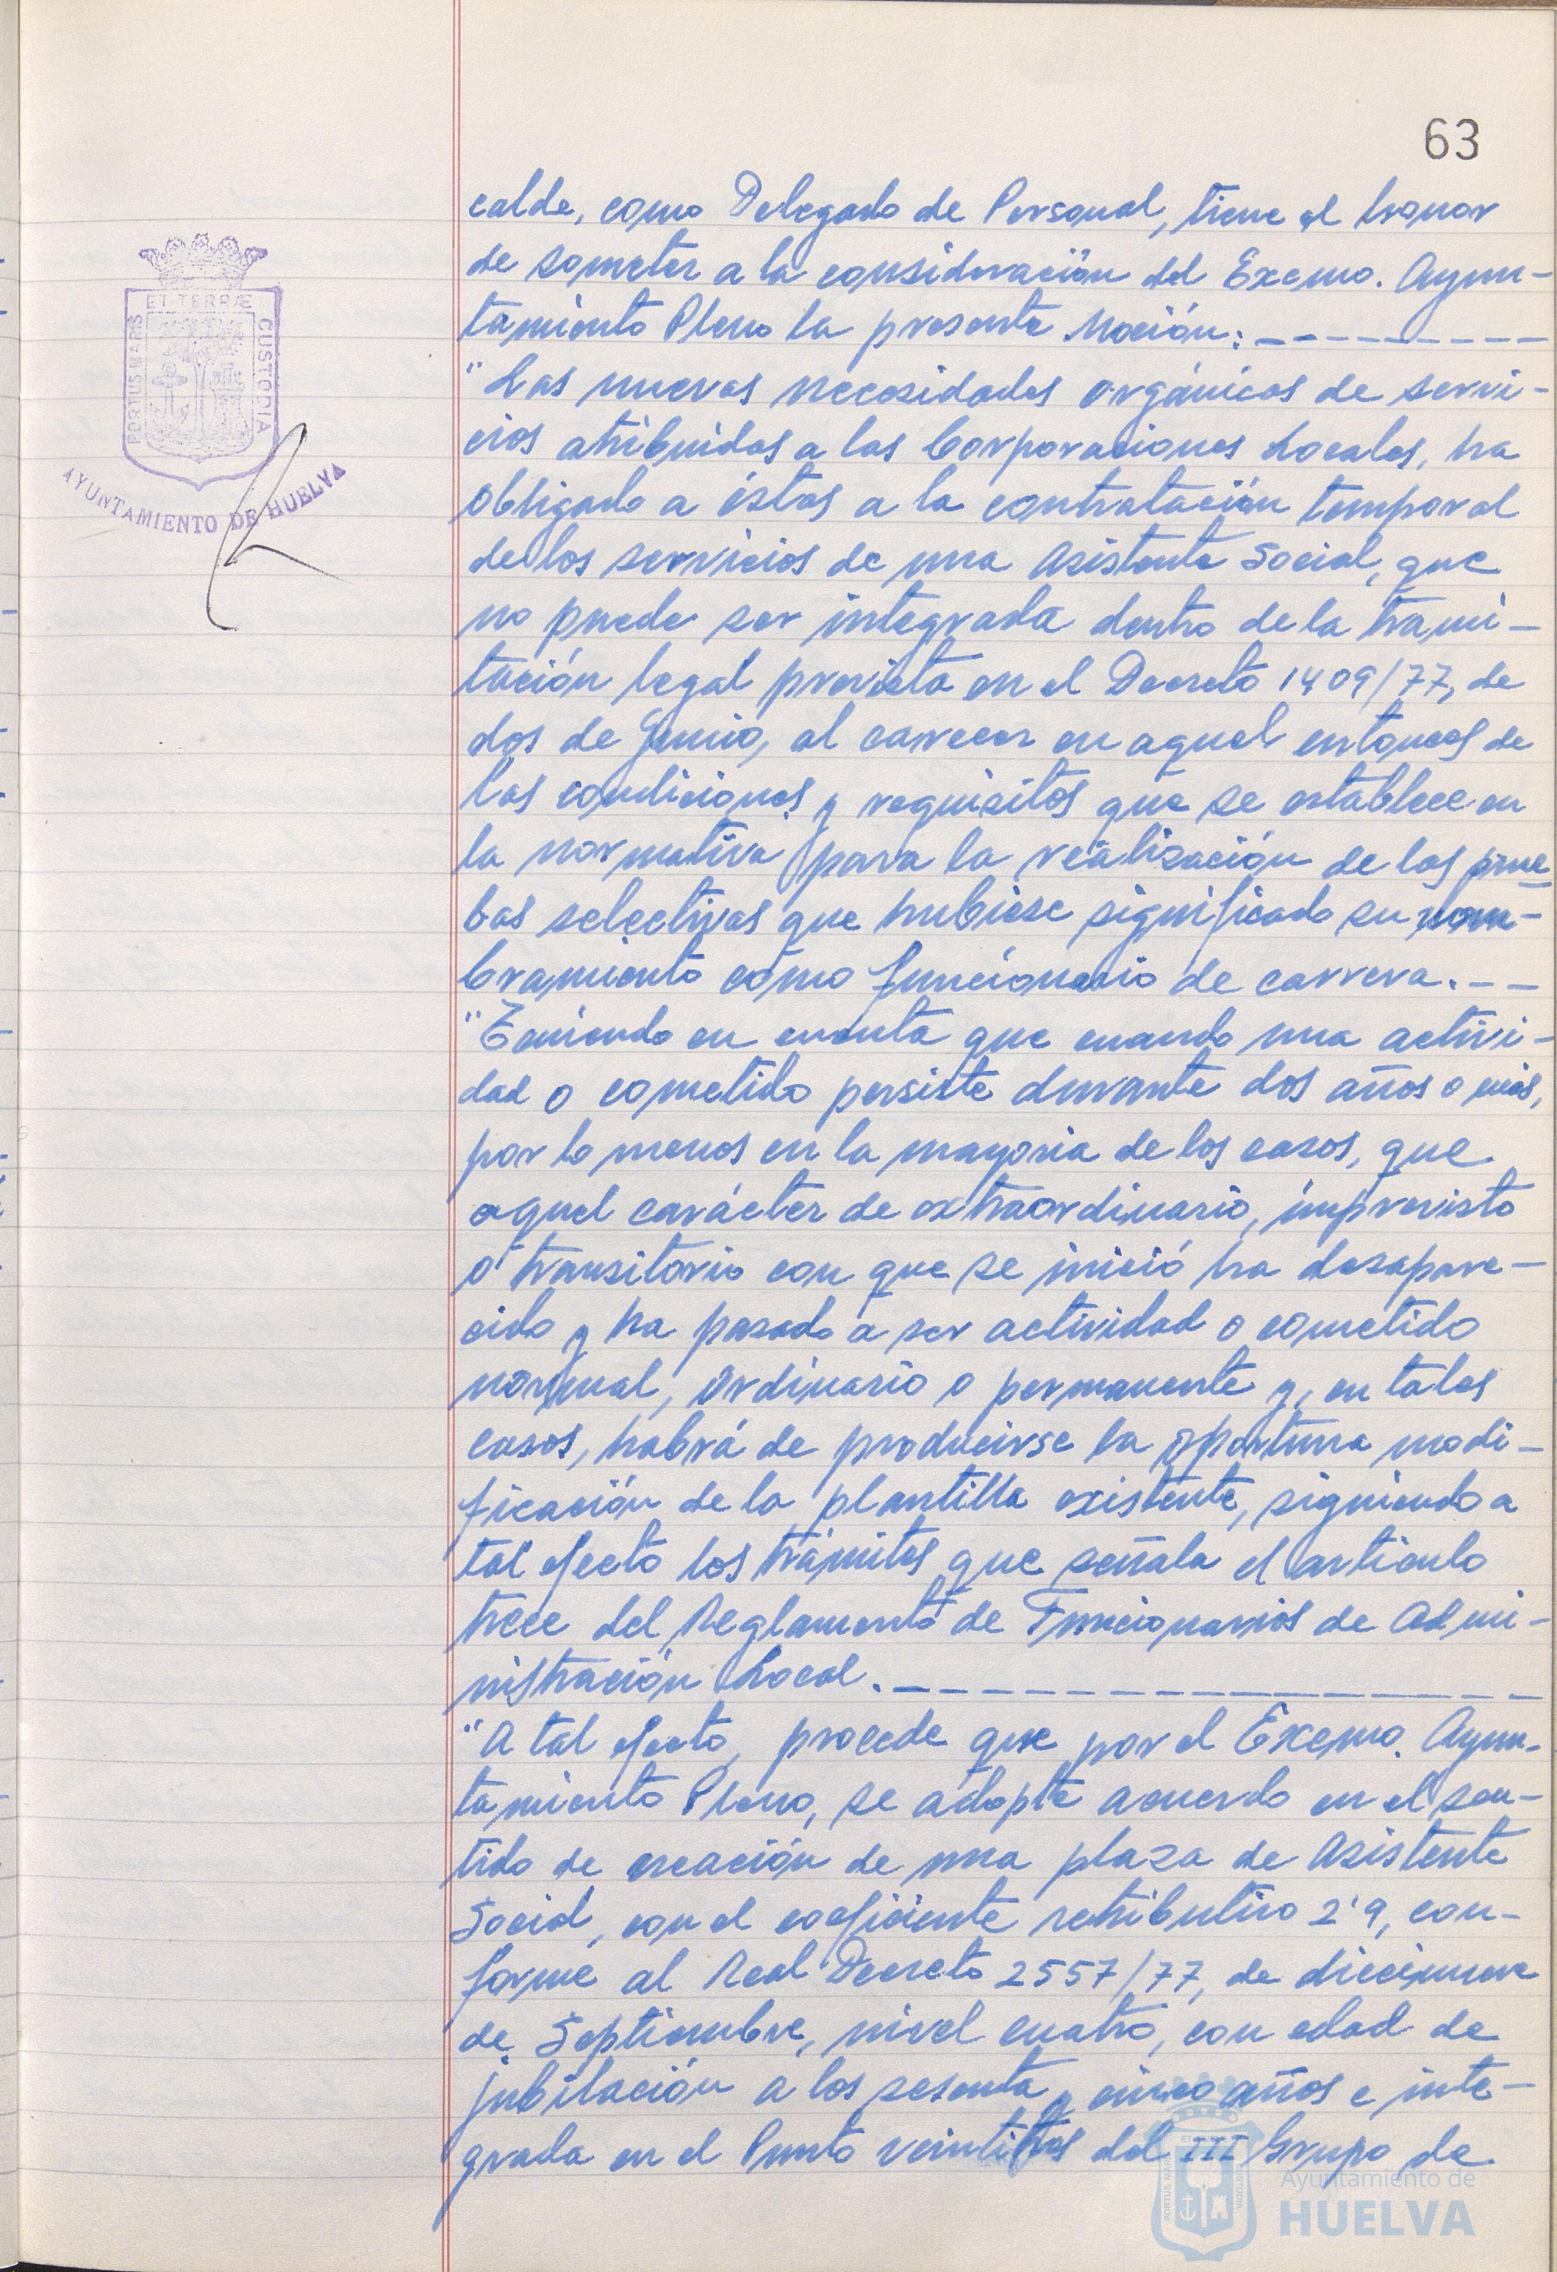 63
calde, como Delegado de Personal, tiene el honor
de someter a la consideración del Excmo. Ayun-
tamiento Pleno la presente Moción:
"Las nuevas necesidades orgánicas de servi-
cios atribuidas a las Corporaciones Locales, ha
obligado a éstas a la contratación temporal
de los servicios de una Asistente Social, que
no puede ser integrada dentro de la trami-
tación legal prevista en el Decreto 1409/77, de
dos de Junio, al carecer en aquel entonces de
las condiciones y requisitos que se establece en
la normativa para la realización de las prue-
bas selectivas que hubiese significado su nom-
bramiento como funcionario de carrera.
"Teniendo en cuenta que cuando una activi-
dad o cometido persiste durante dos años o más,
por lo menos en la mayoria de los casos, que
aquel carácter de extraordinario, imprevisto
o transitorio con que se inició ha desapare-
cido y ha pasado a ser actividad o cometido
normal, ordinario o permanente y, en tales
casos, habrá de producirse la oportuna modi-
ficación de la plantilla existente, siguiendo a
tal efecto los trámites que señala el articulo
trece del Reglamento de Funcionarios de Admi-
nistración Local.
"A tal efecto, procede que por el Excmo. Ayun-
tamiento Pleno, se adopte acuerdo en el sen-
tido de creación de una plaza de Asistente
Social, con el coeficiente retributivo 2'9, con-
forme al Real Decreto 2557/77, de diecinueve
de Septiembre, nivel cuatro, con edad de
jubilación a los sesenta y cinco años e inte-
grada en el Punto veintitres del III Grupo de
PORTUS MARIS
ET TERRÆ
CUSTODIA
AYUNTAMIENTO DE HUELVA
Ayuntamiento de
HUELVA